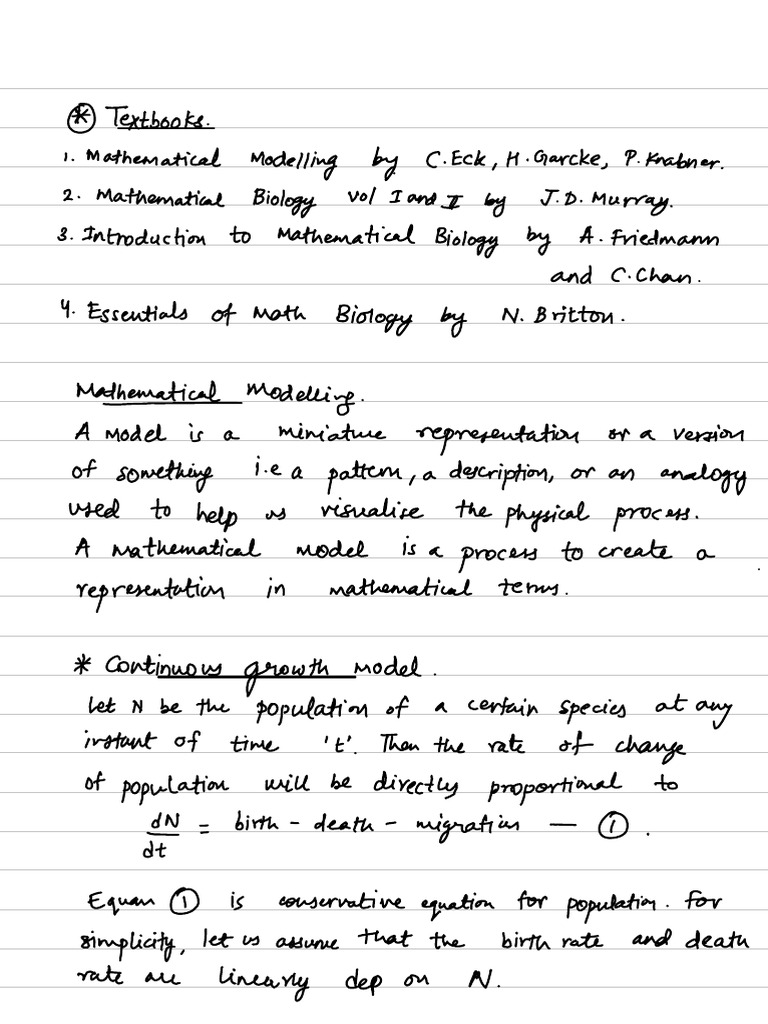 * Textbooks.
1. Mathematical Modelling by C.Eck, H.Garcke, P.Knabner.
2. Mathematical Biology Vol I and II by J.D. Murray.
3. Introduction to Mathematical Biology by A. Friedmann
and C.Chan.
4. Essentials of Math Biology by N. Britton.
Mathematical Modelling.
A model is a miniature representation or a version
of something i.e a pattern, a description, or an analogy
used to help us visualise the physical process.
A mathematical model is a process to create a
representation in mathematical terms.
* Continuous growth model.
Let N be the population of a certain species at any
instant of time 't'. Then the rate of change
of population will be directly proportional to
dN/dt = birth - death - migration — ①.
Equan ① is conservative equation for population. For
simplicity, let us assume that the birth rate and death
rate are linearly dep on N.